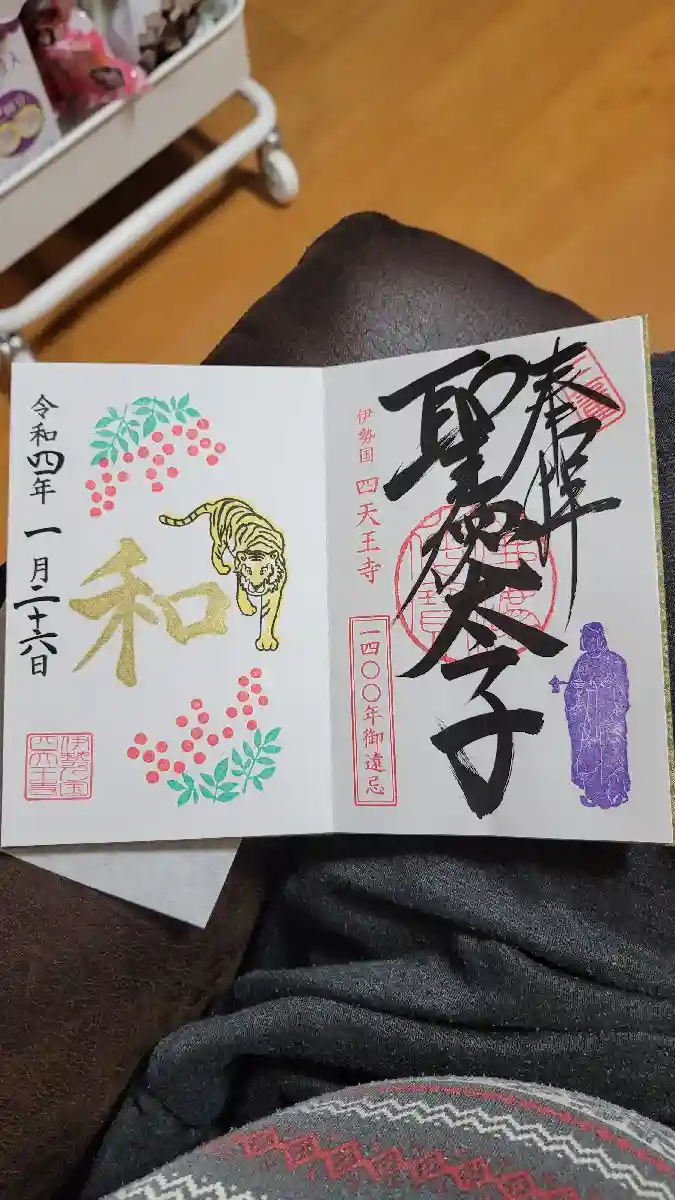 奉拝
聖徳太子
伊勢国 四天王寺
一四〇〇年御遠忌
和
令和四年 一月二十六日
伊勢之国
四天王寺